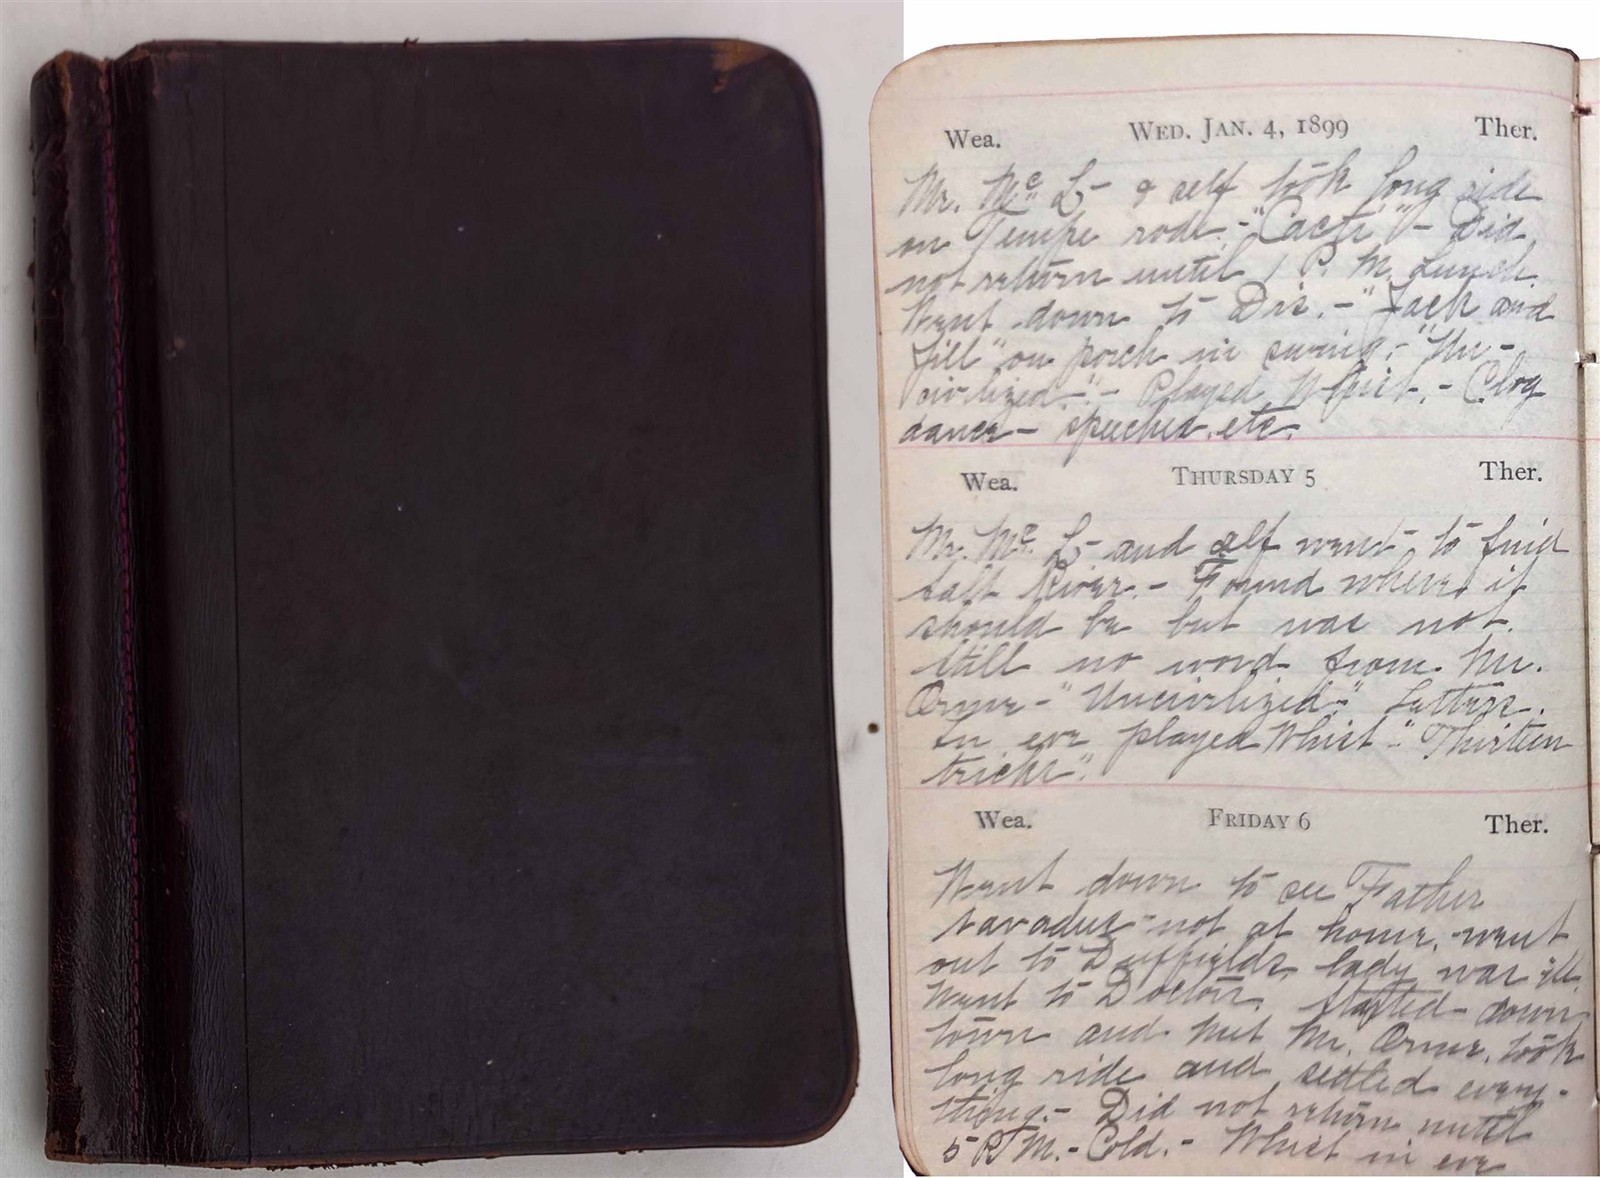 Wea. WED. JAN. 4, 1899 Ther.
Mr. Mc L- & self took long ride
on Tempe rode.- "Cacti" - Did
not return until 1 P. M. Lunch.
Went down to Dis. - "Jack and
Jill" on porch in swing.- "Un-
civilized."- Played Whist.- Clog
dance - speeches, etc.
Wea. THURSDAY 5 Ther.
Mr. Mc L- and self went to find
Salt River.- Found where it
should be but was not.
Still no word from Mr.
Orme - "Uncivilized-" Letters.
In eve played Whist-"Thirteen
tricks".
Wea. FRIDAY 6 Ther.
Went down to see Father
- not at home, - went
out to Duffields, lady was ill.
Went to Doctors, started down
town and met Mr. Orme, took
long ride and settled every-
thing.- Did not return until
5 P. M.- Cold.- Whist in eve